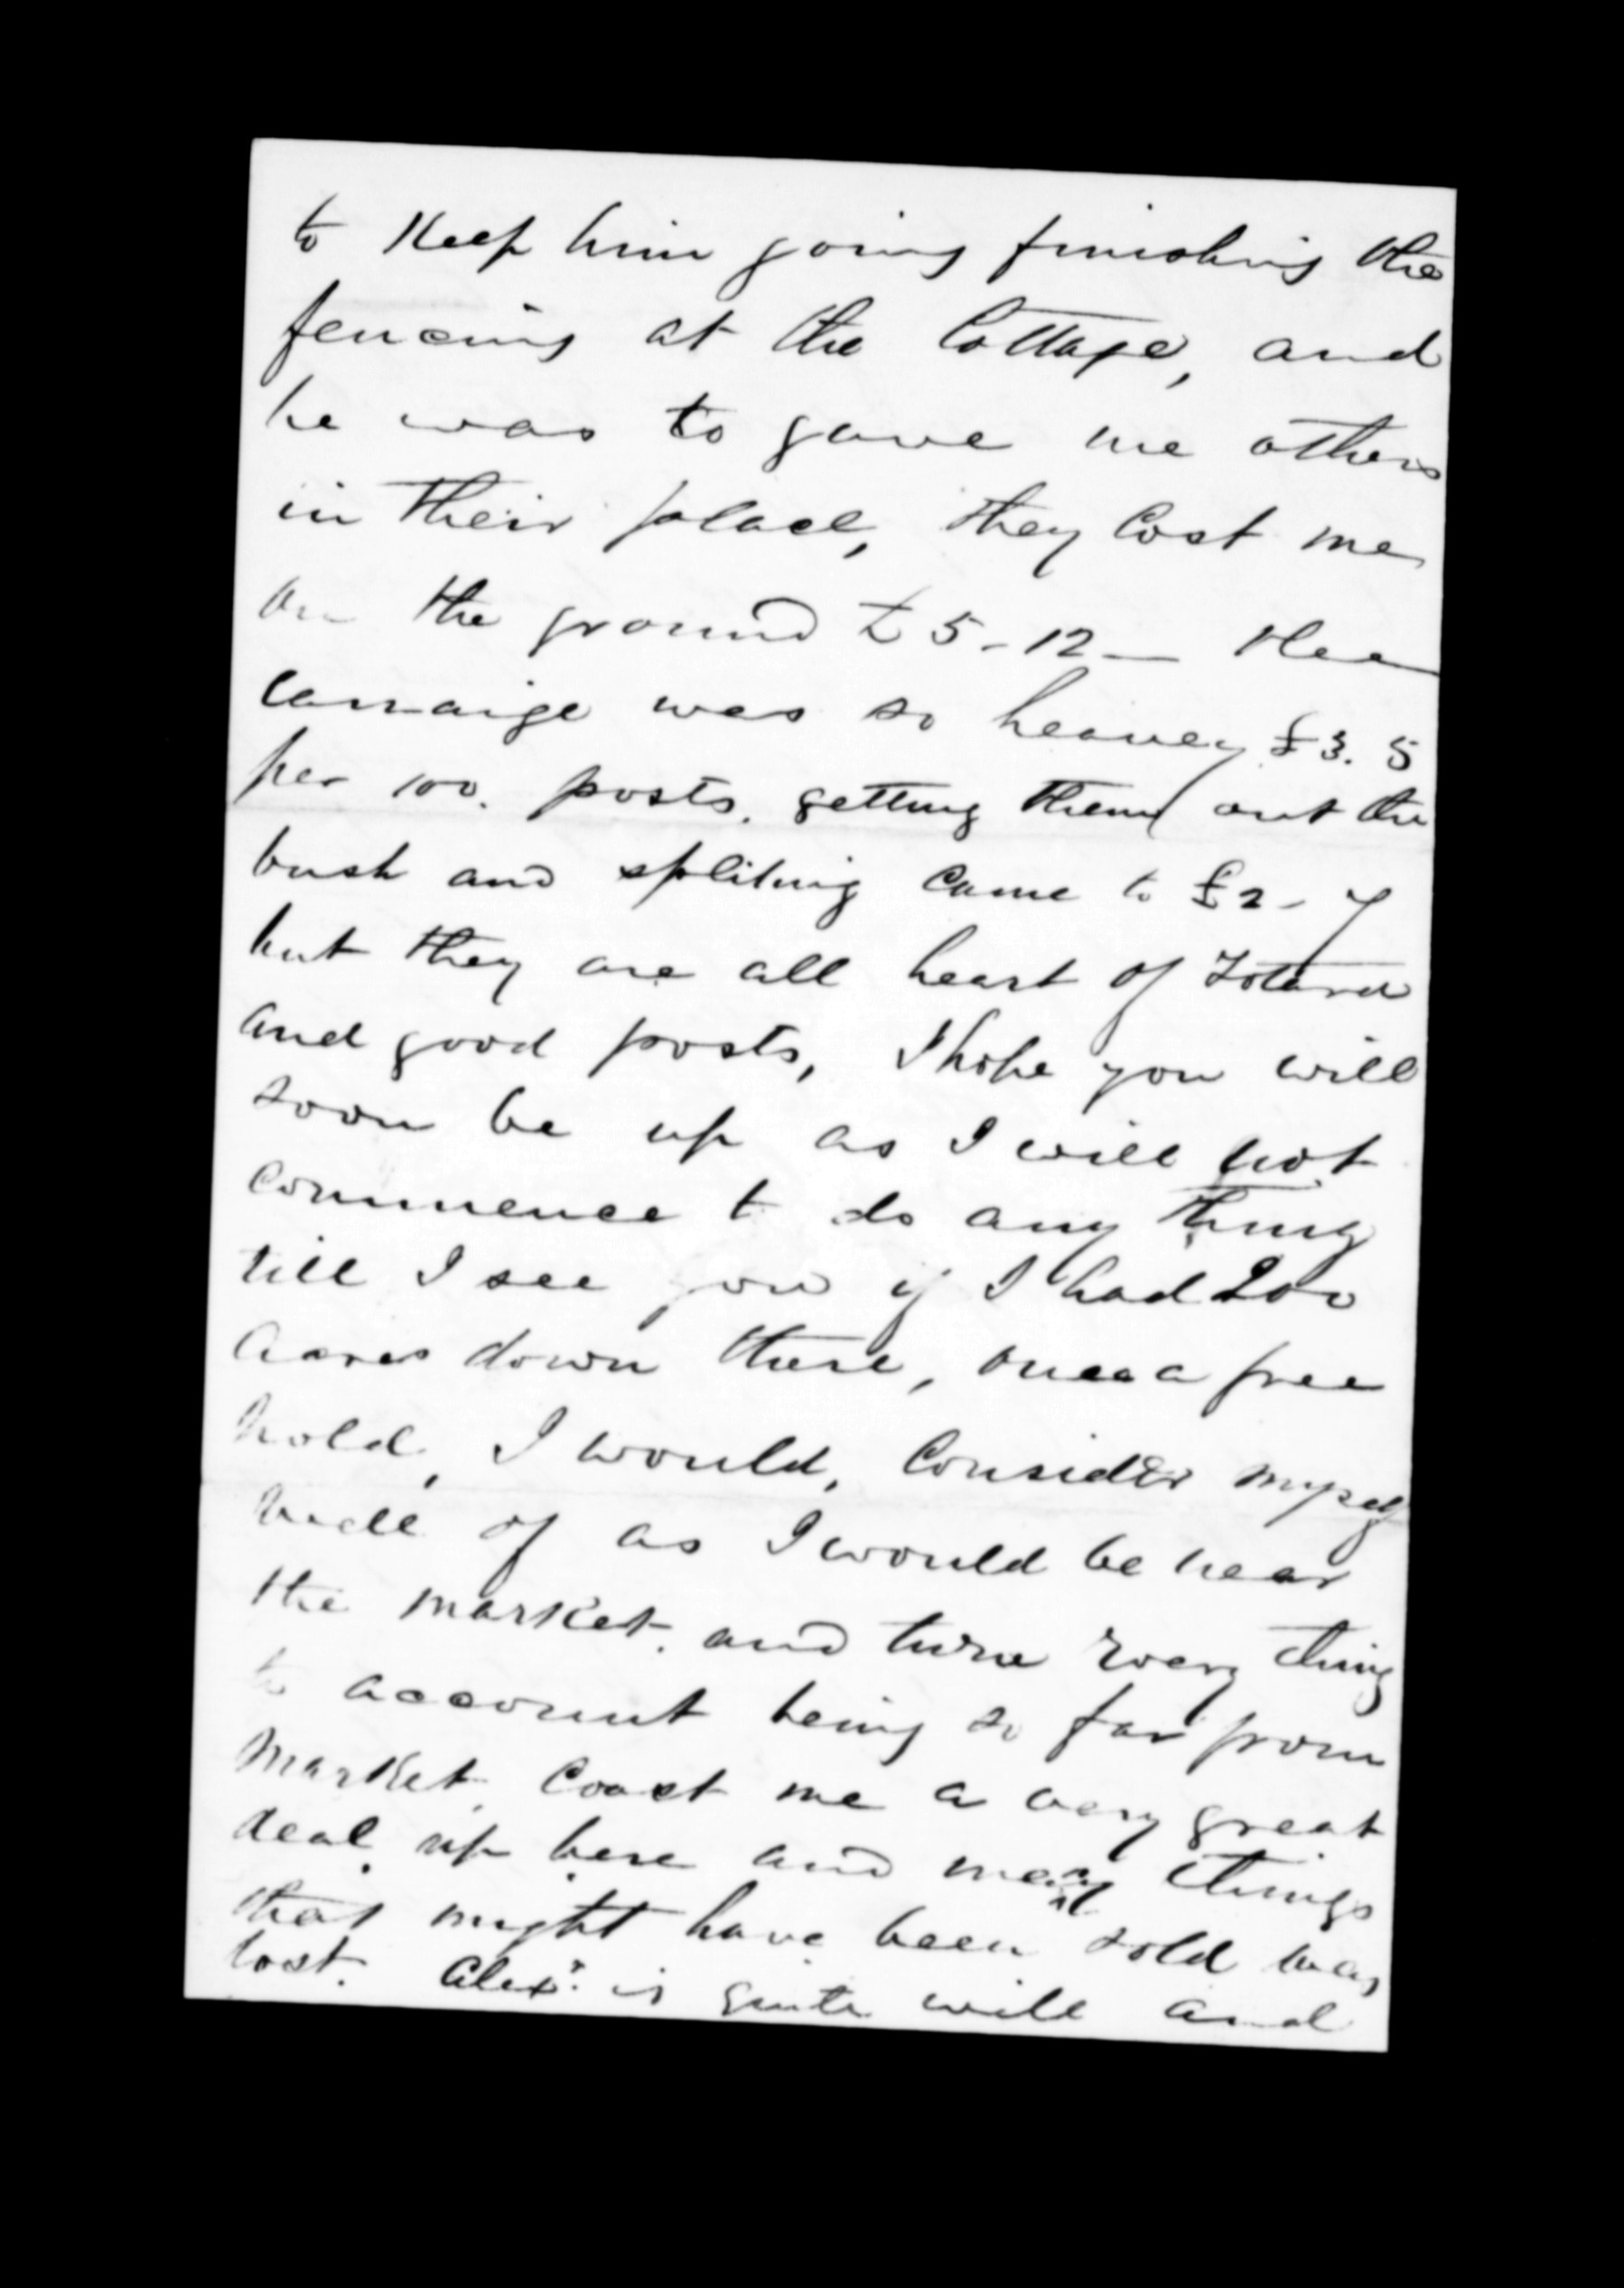 to Keep him going finishing the
fencing at the Cottage, and
he was to gave me others
in their place, they Cost me
on the ground £5-12- the
carraige was so heavey £3. 5
per 100. posts. getting them out the
bush and spliting came to £2-7
but they are all heart of Totara
and good posts, I hope you will
soon be up as I will not
commence to do any thing
till I see you if I had 200
acres down there, once a free
hold, I would, Consider myself
well of as I would be near
the market. and turn every thing
to account being so far from
Market Coast me a very great
deal up here and many things
that might have been sold was
lost. Alexr. is quite well and